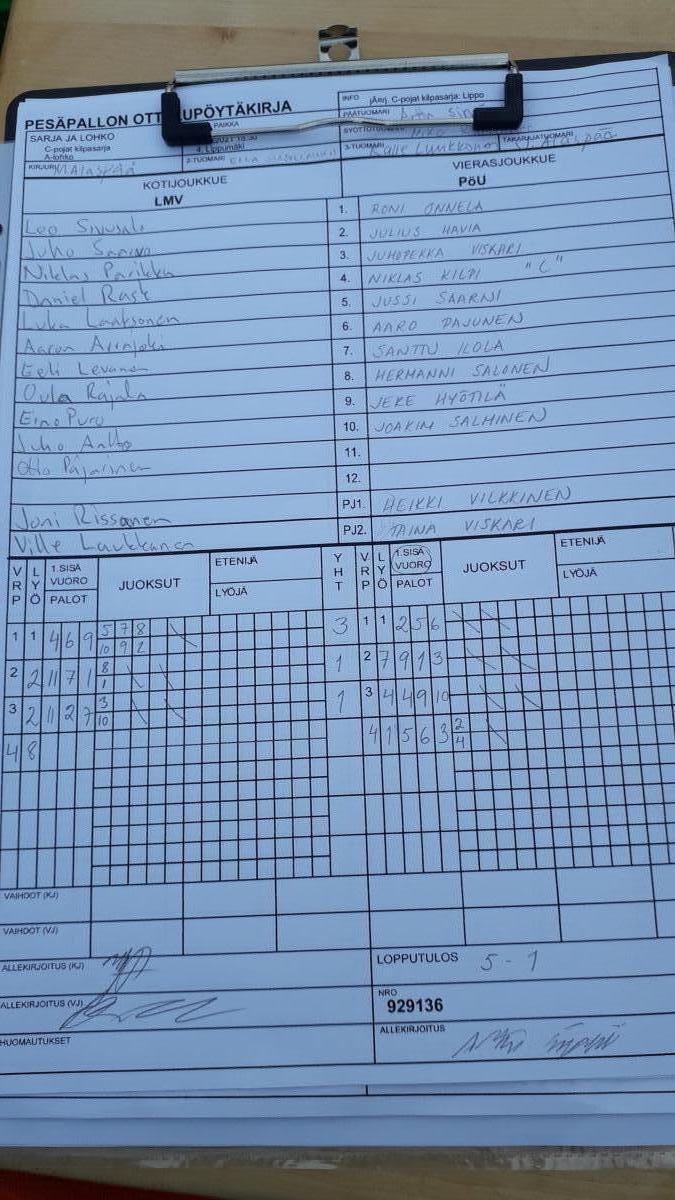 PESÄPALLON OTT UPÖYTÄKIRJA
INFO jÄnj. C-pojat kilpasarja: Lippo
SARJA JA LOHKO
C-pojat kilpasarja
A-lohko
PAIKKA
4. Lippumäki
PÄÄTUOMARI
SYÖTTÖTUOMARI
2-TUOMARI
3-TUOMARI Kalle Luukkonen
TAKARAJATUOMARI
KIRJURI
KOTIJOUKKUE
LMV
VIERASJOUKKUE
PöU
Leo 1. RONI ONNELA
Juho 2. JULIUS HAVIA
Niklas Parikka 3. JUHOPEKKA VISKARI
Daniel Rask 4. NIKLAS KILPI "C"
Luka Laaksonen 5. JUSSI SAARNI
Aaron 6. AARO PAJUNEN
Eeli Levanen 7. SANTTU ILOLA
Oula Rajala 8. HERMANNI SALONEN
Eino Puro 9. JERE HYÖTILÄ
Juho Aalto 10. JOAKIM SALMINEN
Otto Pajarinen 11.
12.
Joni Rissanen PJ1. HEIKKI VILKKINEN
Ville Laukkanen PJ2. TAINA VISKARI
VRP LYÖ 1.SISÄ VUORO PALOT JUOKSUT ETENIJÄ LYÖJÄ YHT VRP LYÖ 1.SISÄ VUORO PALOT JUOKSUT ETENIJÄ LYÖJÄ
1 1 4 6 9 5 7 8 3 1 1 2 5 6
10 9 2
2 2 11 7 1 8 1 2 7 9 1 3
1
3 2 11 2 7 3 1 3 4 4 9 10
10
4 8 4 1 5 6 3 2
4
VAIHDOT (KJ)
VAIHDOT (VJ)
ALLEKIRJOITUS (KJ)
LOPPUTULOS 5 - 1
ALLEKIRJOITUS (VJ)
NRO
929136
HUOMAUTUKSET
ALLEKIRJOITUS